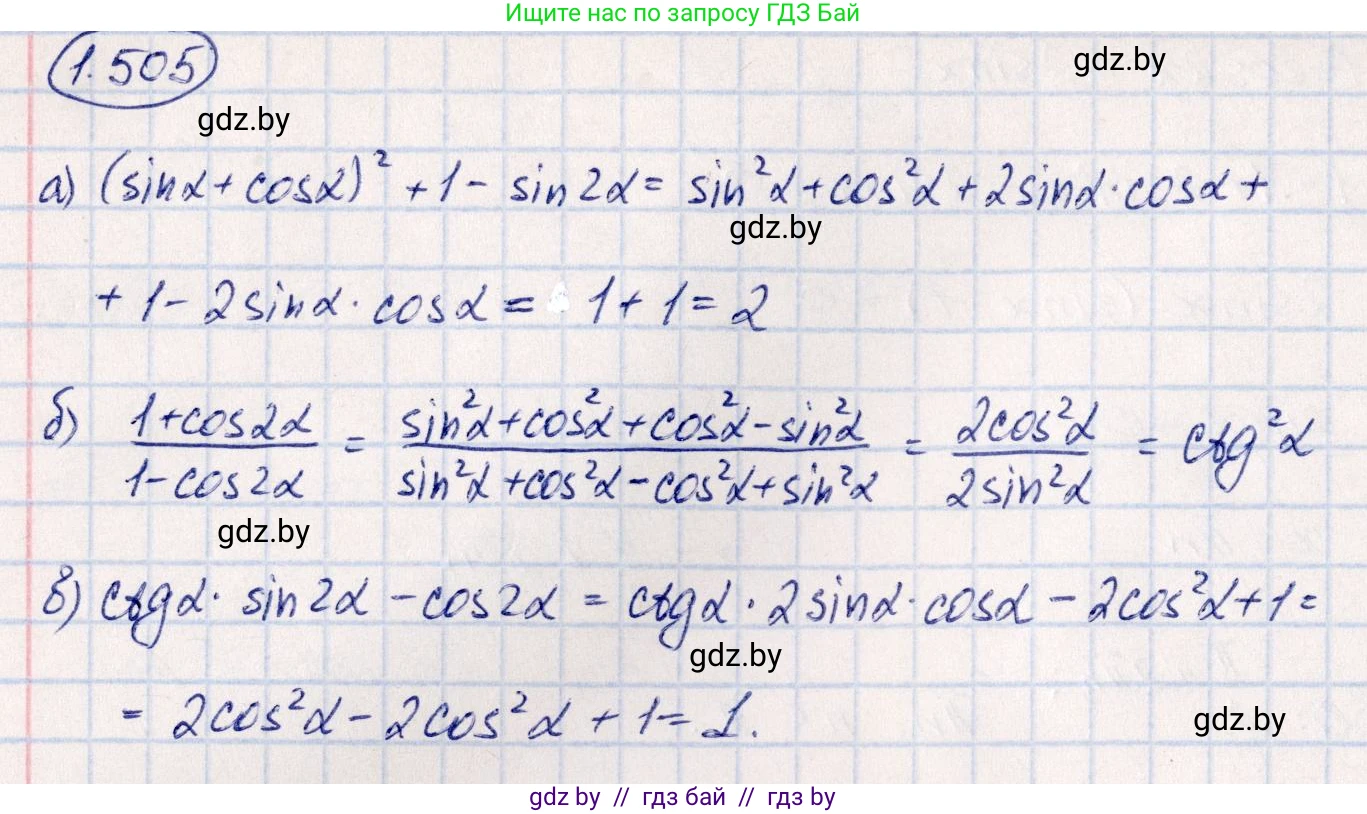 Ищите нас по запросу ГДЗ Бай
1.505
gdz.by
gdz.by
а) (sinα + cosα)² + 1 - sin2α = sin²α + cos²α + 2sinα · cosα +
gdz.by
+ 1 - 2sinα · cosα = 1 + 1 = 2
б) (1+cos2α)/(1-cos2α) = (sin²α+cos²α+cos²α-sin²α)/(sin²α+cos²α-cos²α+sin²α) = (2cos²α)/(2sin²α) = ctg²α
gdz.by
в) ctgα · sin2α - cos2α = ctgα · 2sinα · cosα - 2cos²α + 1 =
gdz.by
= 2cos²α - 2cos²α + 1 = 1.
gdz.by
gdz by // гдз бай // гдз by